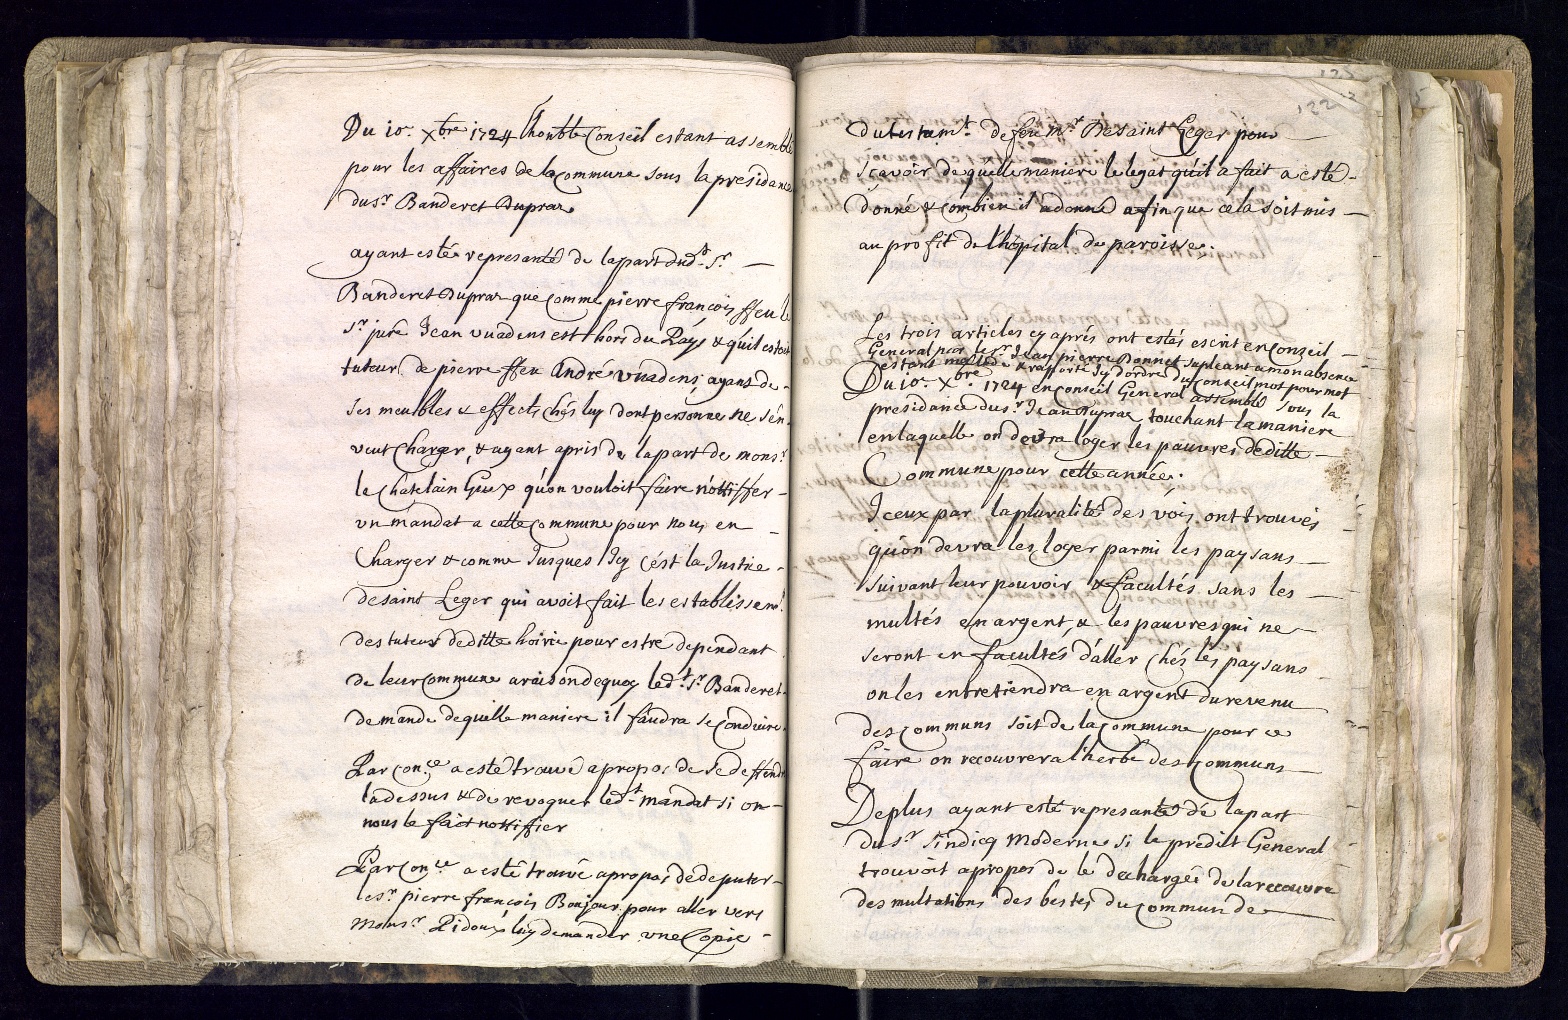 Du 10e. Xbre 1724 lhonble Conseil estant assemblé
pour les affaires de la Commune sous la présidance
du sr Banderet Dupraz
ayant esté represanté de la part dud.t Sr.
Banderet Dupraz que comme pierre françois ffeu le
Sr juré Jean vuadens est hors du Päys & quil estoit
tuteur de pierre ffeu André vuadens, ayans de
ses meubles & effects chés luy dont personne ne s'en
veut Charger, & ayant apris de la part de monsr
le Chatelain Guex qu'on vouloit faire nottiffier
un mandat a cette Commune pour nous en
Charger & comme Jusques Icy c'est la Justice
de saint Leger qui avoit fait les establissemt
des tuteurs de ditte hoirie pour estre dependant
de leur Commune a raison de quoy led.t Sr Banderet
demande de quelle maniere il faudra se Conduire
Par Con.ce a esté trouvé a propos de se deffendre
la dessus & de revoquer led.t mandat si on
nous le fait nottiffier
Par Con.ce a esté trouvé a propos de deputer
le sr pierre françois Bonjour pour aller vers
monsr Ridoux luy demander une Copie
122
du testamt. de feu mr De saint Leger pour
scavoir de quelle maniere le legat quil a fait a esté
donné & combien il a donné afin que cela soit mis
au profit de l'hôpital de paroisse.
Les trois articles cy aprés ont estés escrit en Conseil
General par le sr Jean pierre Bonnet supleant a mon absence
estant malade & rapporté Icy d'ordre du Conseil mot pour mot
Du 10e. Xbre. 1724 en Conseil General assemblé sous la
présidance du sr Jean Dupraz touchant la maniere
en laquelle on devra loger les pauvres de ditte
Commune pour cette année.
Iceux par la pluralité des vois ont trouvés
qu'on devra les loger parmi les paysans
suivant leur pouvoir & facultés sans les
multés en argent, & les pauvres qui ne
seront en facultés d'aller chés les paysans
on les entretiendra en argent du revenu
des Communs soit de la Commune pour ce
faire on recouvrera l'herbe des Communs
De plus ayant esté represanté de la part
du sr sindicq moderne si le prédit General
trouvoit a propos de le dechargés de la recouvre
des multations des bestes du Commun de